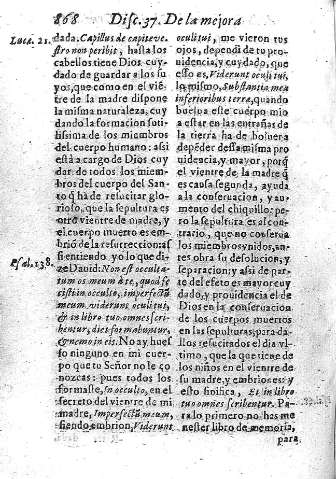 868 Disc. 37. De la mejora
Luca. 21.
dada. Capillus de capite ve-
stro non peribit, hasta los
cabellos tiene Dios cuy-
dado de guardar a los su
yos, que como en el viē-
tre de la madre dispone
la misma naturaleza, cuy
dando la formacion sutil-
lissima de los miembros
del cuerpo humano: assi
està a cargo de Dios cuy
dar de todos los miem-
bros del cuerpo del San-
to q̄ ha de resucitar glo-
rioso, que la sepultura es
otro vientre de madre, y
el cuerpo muerto es em-
brió de la resurreccion: a
Psal. 138.
si entiendo yo lo que di-
ze Dauid: Non est occulta-
tum os meum à te, quod fe
cisti in occulto, imperfectū
meum viderunt oculi tui,
& in libro tuo omnes scri-
bentur, dies formabuntur,
& nemo in eis. No ay hues-
so ninguno en mi cuer-
po que tu Señor no le co
nozcas: pues todos los
formaste, In occulto, en el
secreto del vientre de mi
madre, Imperfectū meum,
siendo embrion, Viderunt
oculi tui, me vieron tus
ojos, dependi de tu pro-
uidencia, y cuydado, que
esso es, Viderunt oculi tui,
lo mismo, Substantia mea in
inferioribus terra, quando
buelua este cuerpo mio
a estar en las entrañas de
la tierra ha de boluer a
depēder dessa misma pro
uidencia, y mayor, porq̄
el vientre de la madre q̄
es causa segunda, ayuda
a la conseruacion, y au-
mento del chiquillo: pe-
ro la sepultura es al con-
trario, que no conserua
los miembros vnidos, an-
tes obra su desolucion, y
separacion; y assi de par-
te del efeto es mayor cuy
dado, y prouidencia el de
Dios en la conseruacion
de los cuerpos muertos
en las sepulturas, para da-
llos resucitados el dia vl-
timo, que la que tiene de
los niños en el vientre de
su madre, y embriones: y
esto sinifica, Et in libro
tuo omnes scribentur. Pa-
ra lo primero no has me
nester libro de memoria,
para